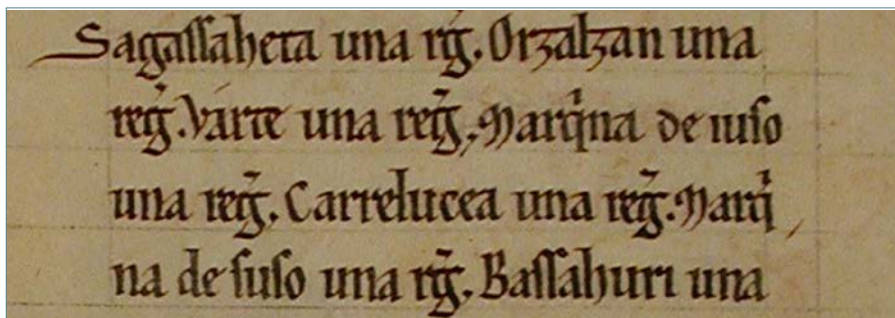 Sagassaheta una rg̃. Orzalzan una
reg̃. Varte una reg̃. Marq̇na de iuso
una reg̃. Carrelucea una reg̃. Marq̇
na de suso una rg̃. Bassahuri una